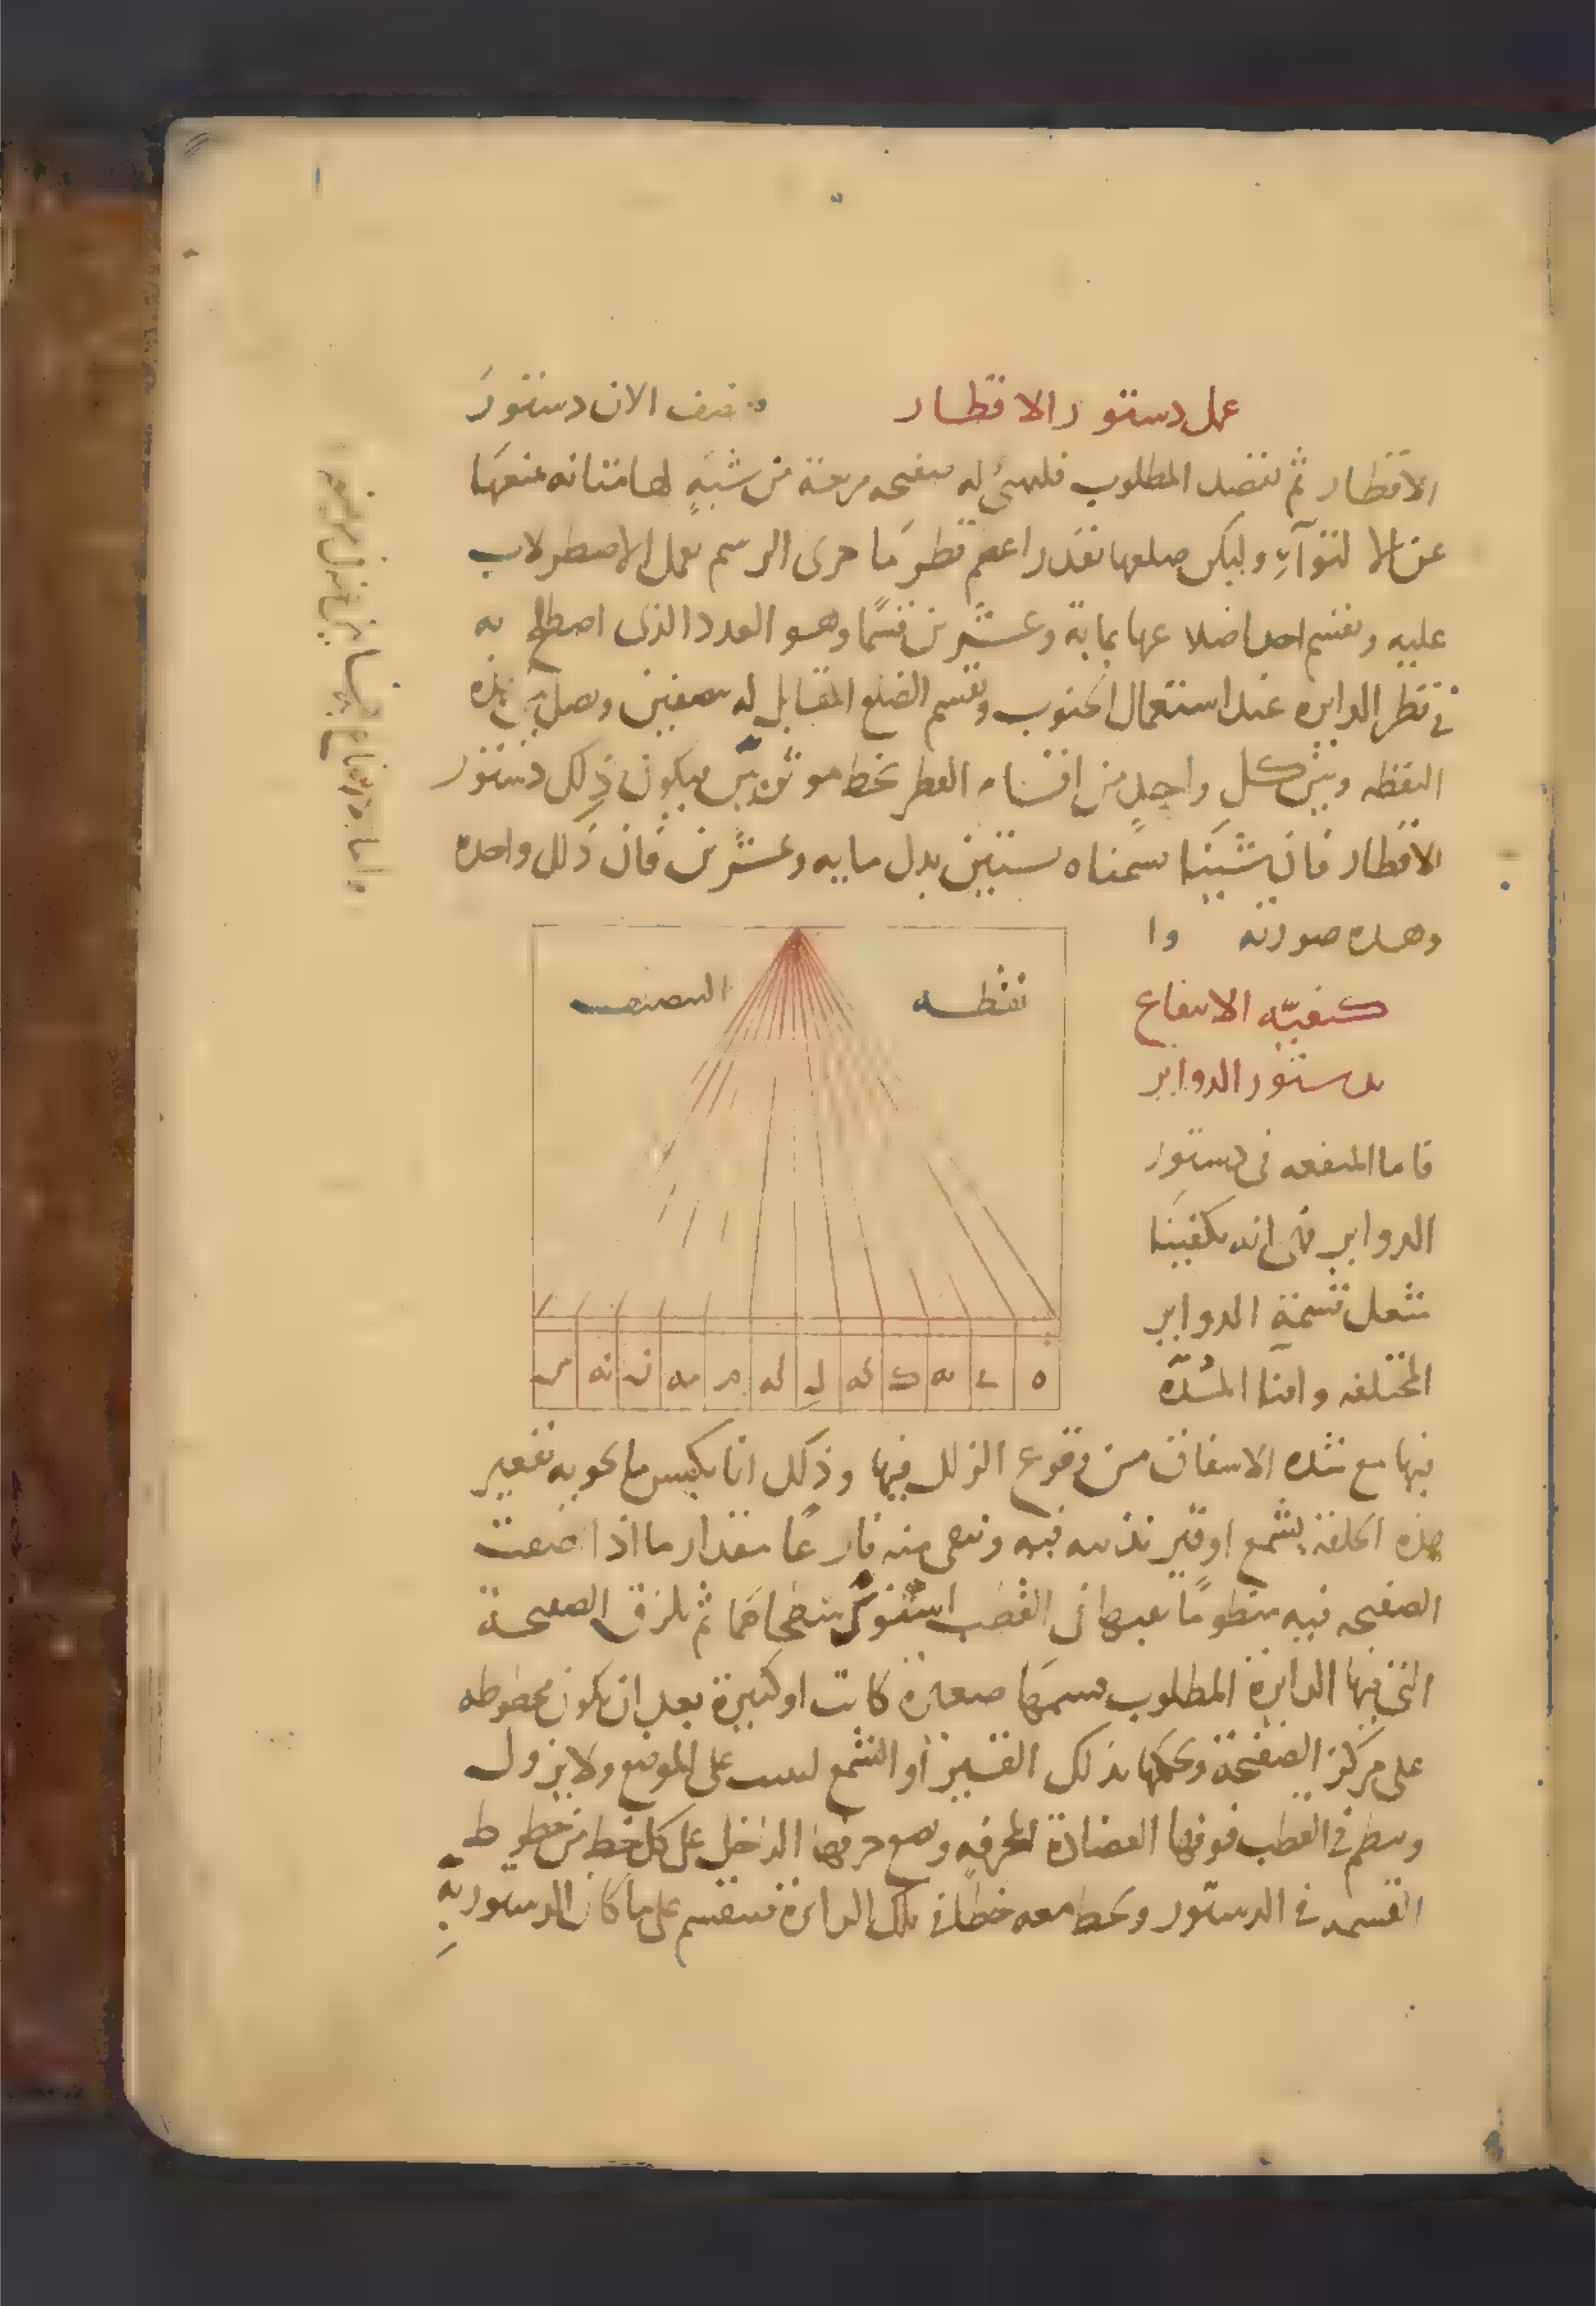 عمل دستور الاقطار ونصف الان دستور
الاقطار ثم نقصد المطلوب فلنهيئ له صفيحه مربعة من شبهٍ لها متانه تمنعها
عن الالتوآءِ وليكن ضلعها بقدر اعظم قطر ما جرى الرسم بعمل الاصطرلاب
عليه ونقسم احد اضلاعها بمايه وعشرين قسمًا وهو العدد الذى اصطلح به
فى قطر الدايره عند استعمال الجيوب ونقسم الضلع المقابل له بنصفين ونصل بين هذه
النقطه وبين كل واحدٍ من اقسام القطر بخط فيكون ذلك دستور
الاقطار فان شينا قسمناه بستين بدل مايه وعشرين فان ذلك واحده
وهذه صورته وا
نقطه النصف
كيفيّه الانتفاع
بدستور الدواير
فاما المنفعه فى دستور
الدواير فهى انه يكفينا
شغل قسمة الدواير
المختلفه وامنا
ه ى يه ك كه ل له م مه ن نه س
فيها مع شده الاشفاق من وقوع الزلل فيها وذلك انا نكبس ما يحويه تقعير
هذه الحلقة بشمع او قير نذيبه فيه ونبقى منه فارغًا مقدار ما اذا وضعت
الصفيحه فيه منظومًا ثقبها فى القطب استوى سطحاهما ثم نلزق الصفيحة
التى فيها الدايرة المطلوب قسمتها صغيرة كانت او كبيرة بعد ان يكون مخطوطه
على مركز الصفيحة ونحكمها بذلك القير او الشمع لتثبت على الموضع ولا يزول
وينظم فى القطب فوقها العضادة المحرفه ونضع حرفها الداخل على كل خط من خطوط
القسمه فى الدستور ونخط معه خطًا فى تلك الدايرة فتنقسم على ما كان الدستور به